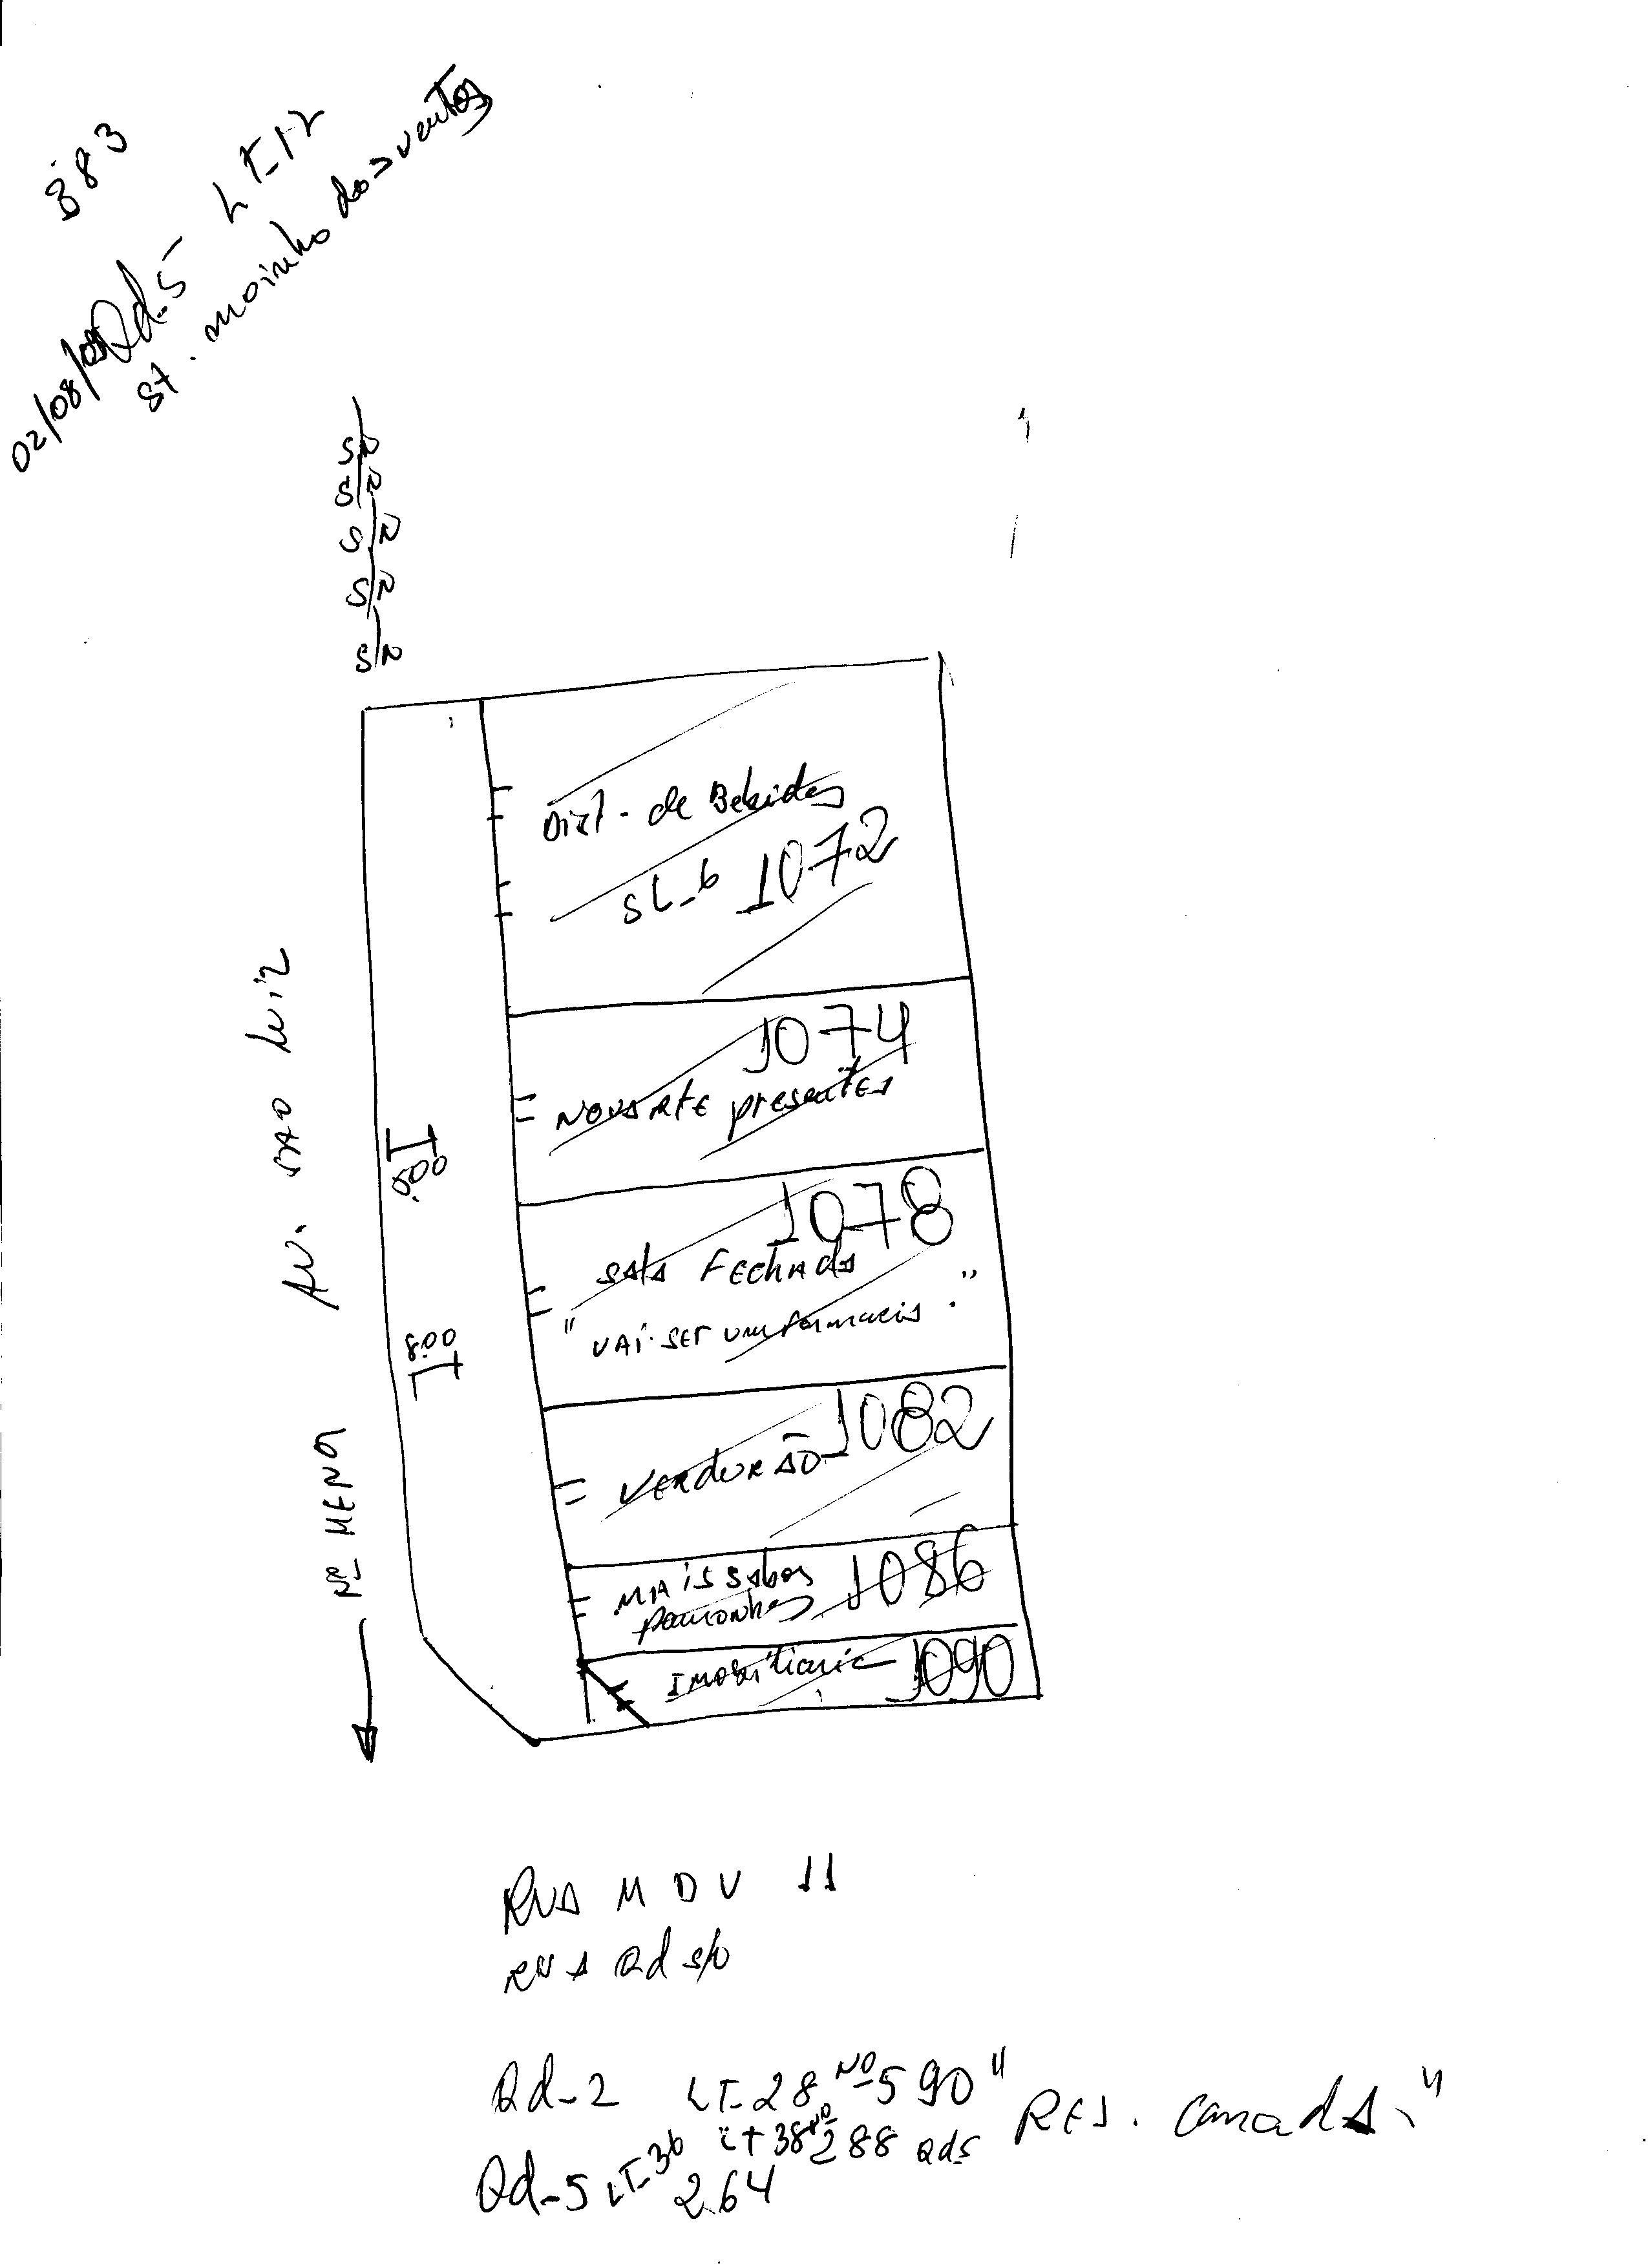 883
Qd-5 LT-12
St. moinho dos ventos
S/N
S/N
S/N
S/N
S/N
Dist- de Bebidas
SL-6 1072
1074
NOVARTE presentes
1078
SALA FECHADA
"VAI SER uma farmacia."
1082
VERDURÃO
MAIS Sabor 1086
Pamonhas
Imobiliaria 1090
AV. SAO LUIZ
5.00
8.00
Nº MENOR
RUA M D V 11
RUA Qd s/o
Qd-2 LT-28 Nº 590 "RES. Canada."
LT 38 Nº 288 Qd5
Qd-5 LT-36 264